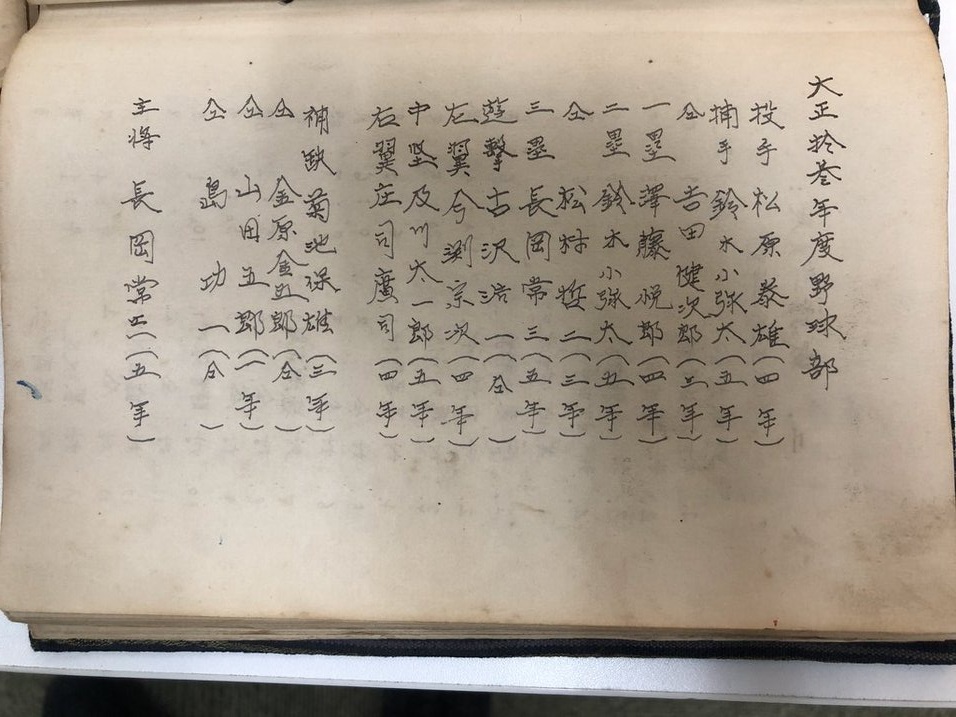 大正拾壱年度野球部
投手 松原泰雄(四年)
捕手 鈴木小弥太(五年)
仝 吉田健次郎(三年)
一塁 澤藤悦郎(四年)
二塁 鈴木小弥太(五年)
仝 松村哲二(三年)
三塁 長岡常三(五年)
遊撃 古沢浩一(仝)
左翼 今渕宗次(四年)
中堅 及川大一郎(五年)
右翼 庄司廣司(四年)
補欠 菊池保雄(三年)
仝 金原金五郎(仝)
仝 山田五郎(一年)
仝 島功一(仝)
主将 長岡常三(五年)